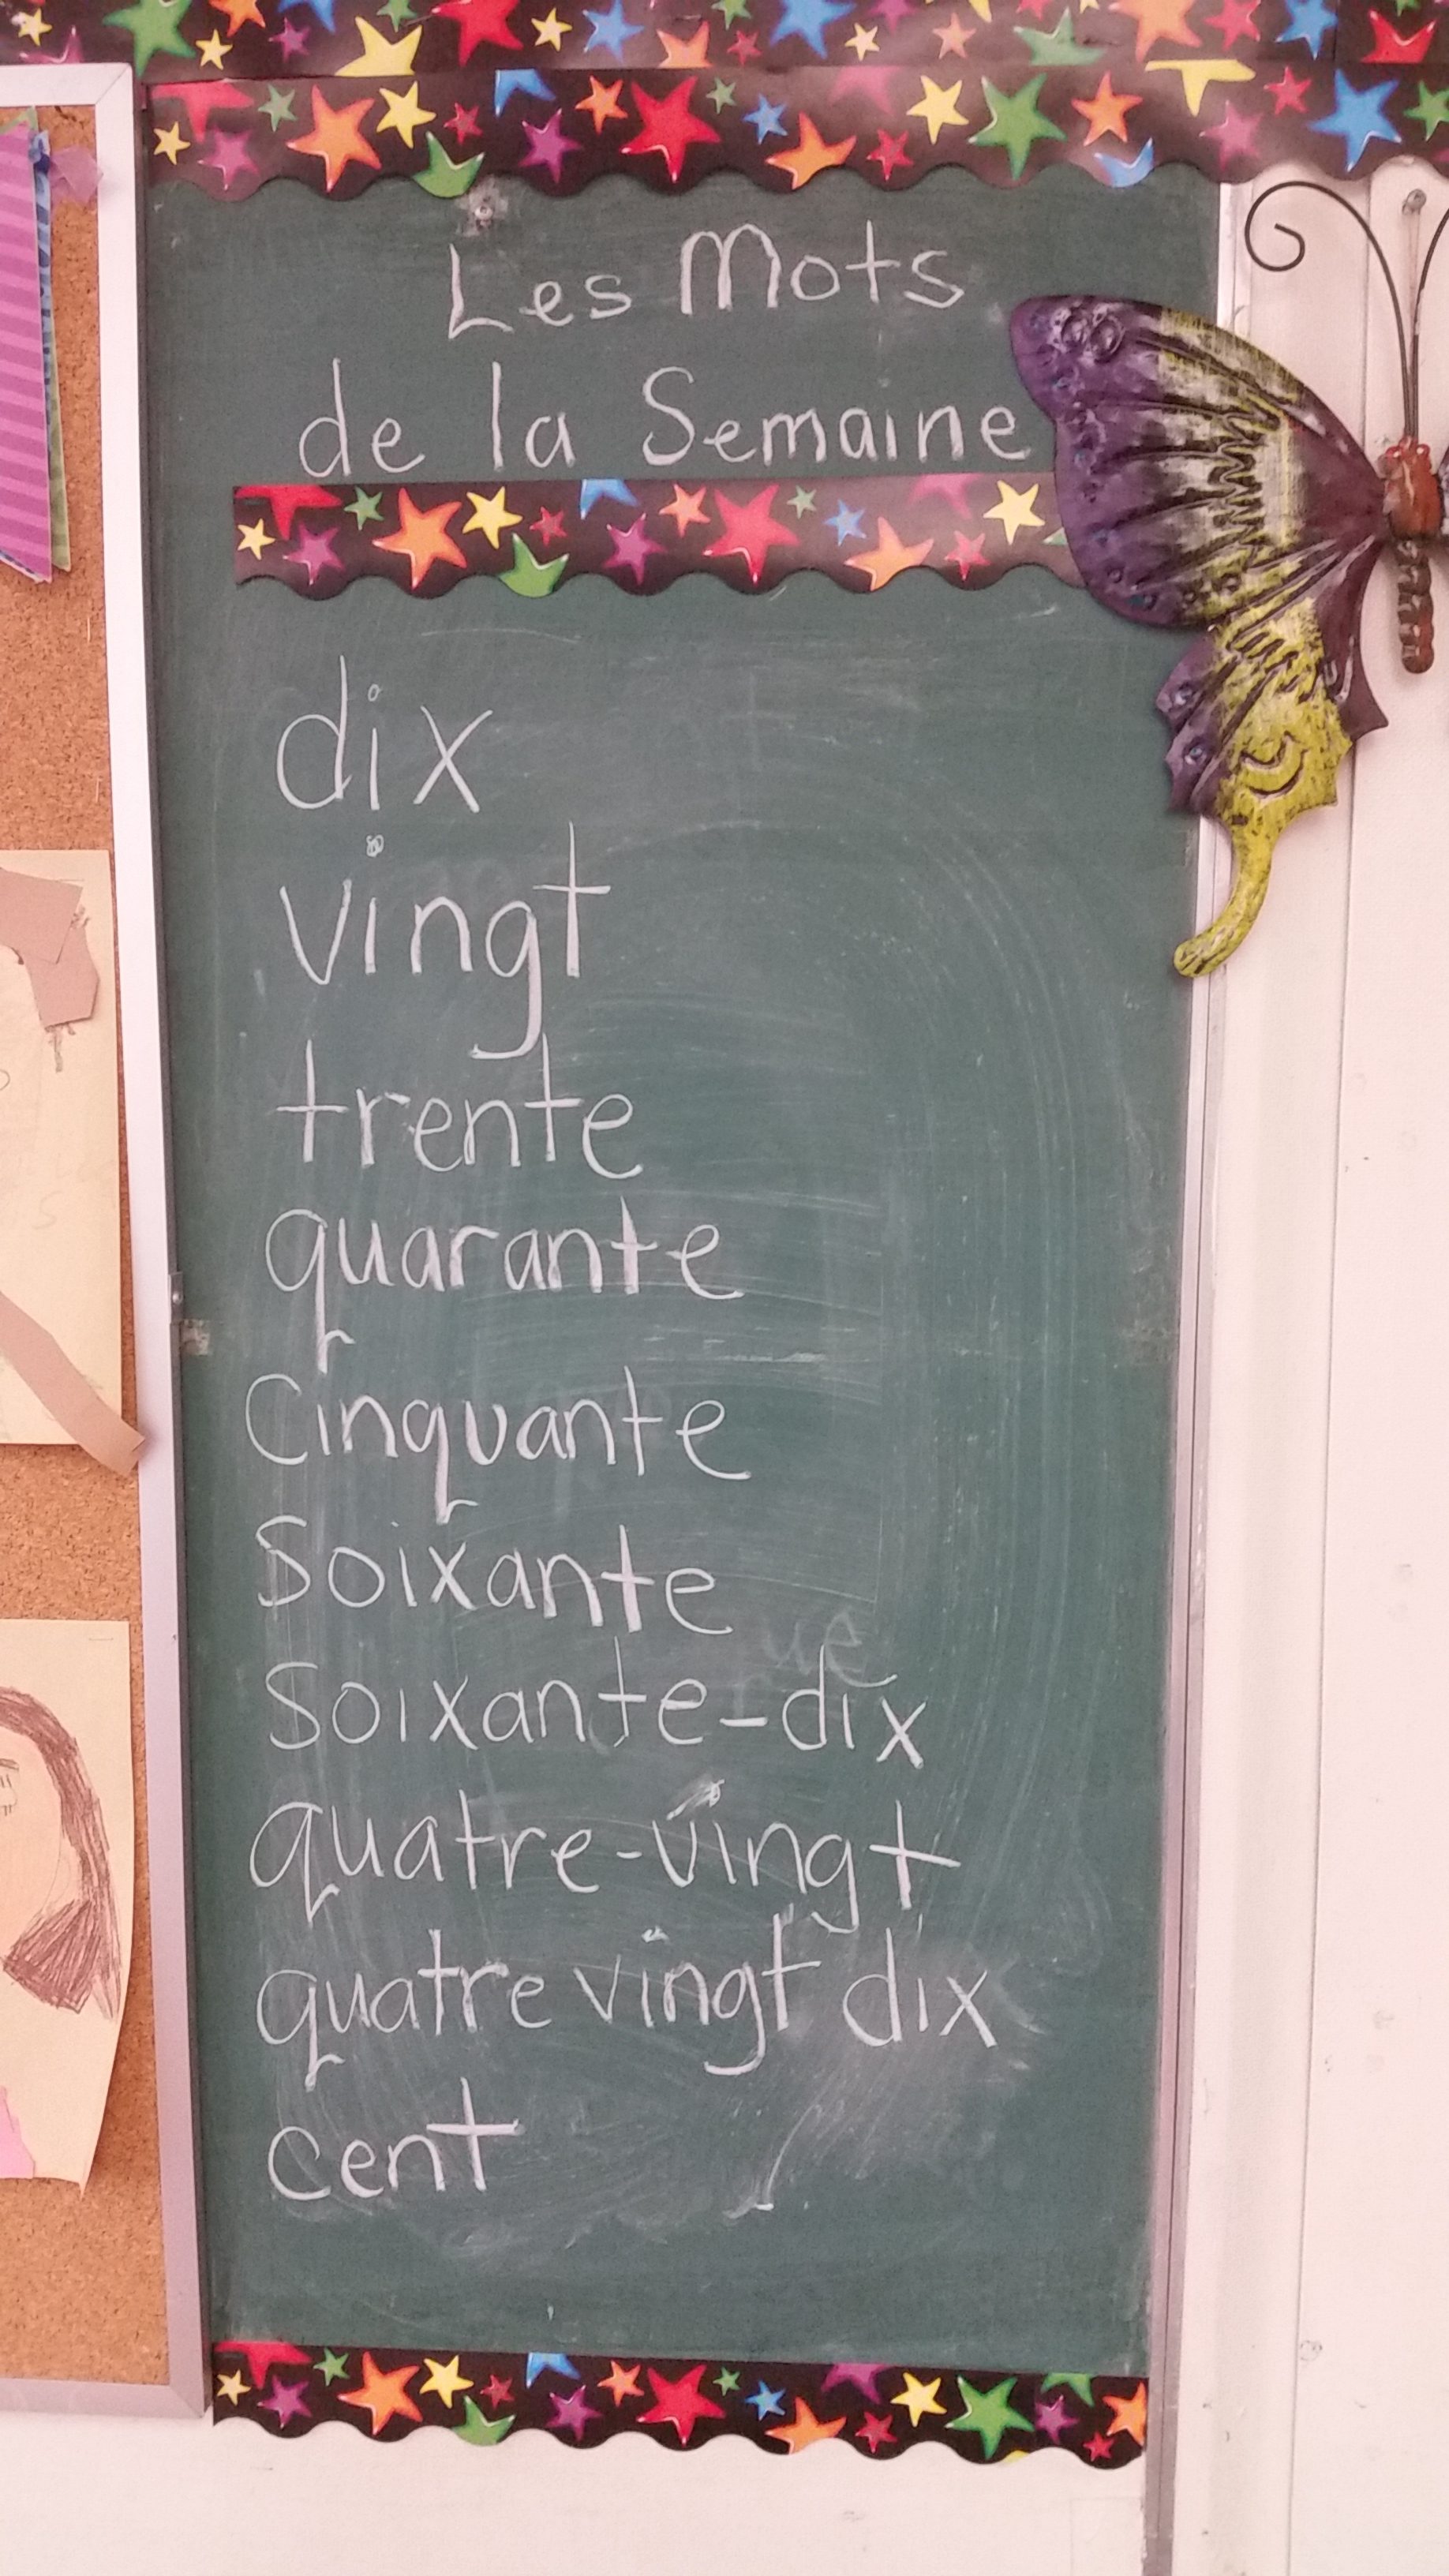 Les Mots
de la Semaine
dix
vingt
trente
quarante
Cinquante
Soixante
Soixante-dix
quatre-vingt
quatre vingt dix
cent